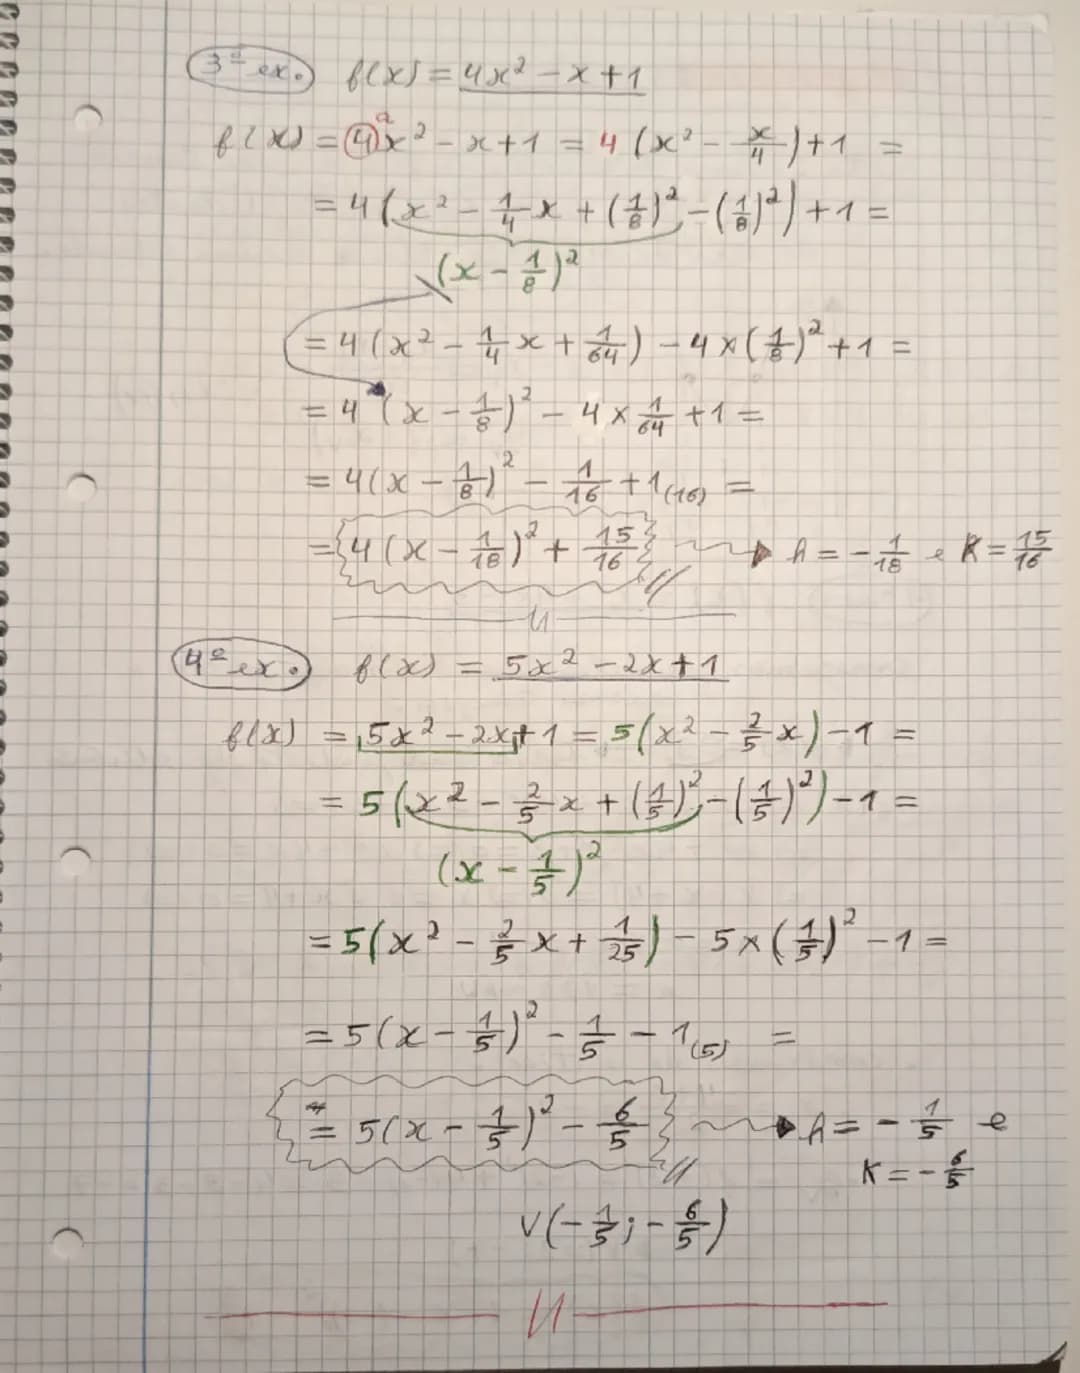 3º ex. f(x) = 4x² - x + 1
a
f(x) = 4x² - x + 1 = 4 (x² - x/4) + 1 =
= 4 (x² - 1/4 x + (1/8)² - (1/8)²) + 1 =
(x - 1/8)²
= 4 (x² - 1/4 x + 1/64) - 4 × (1/8)² + 1 =
= 4 (x - 1/8)² - 4 × 1/64 + 1 =
= 4(x - 1/8)² - 1/16 + 1(16) =
= 4 (x - 1/18)² + 15/16 → h = - 1/18 e K = 15/16
4º ex. f(x) = 5x² - 2x + 1
f(x) = 5x² - 2x + 1 = 5(x² - 2/5 x) - 1 =
= 5(x² - 2/5 x + (1/5)² - (1/5)²) - 1 =
(x - 1/5)²
= 5(x² - 2/5 x + 1/25) - 5 × (1/5)² - 1 =
= 5(x - 1/5)² - 1/5 - 1(5) =
= 5(x - 1/5)² - 6/5 → h = - 1/5 e
K = - 6/5
V(- 1/5 ; - 6/5)